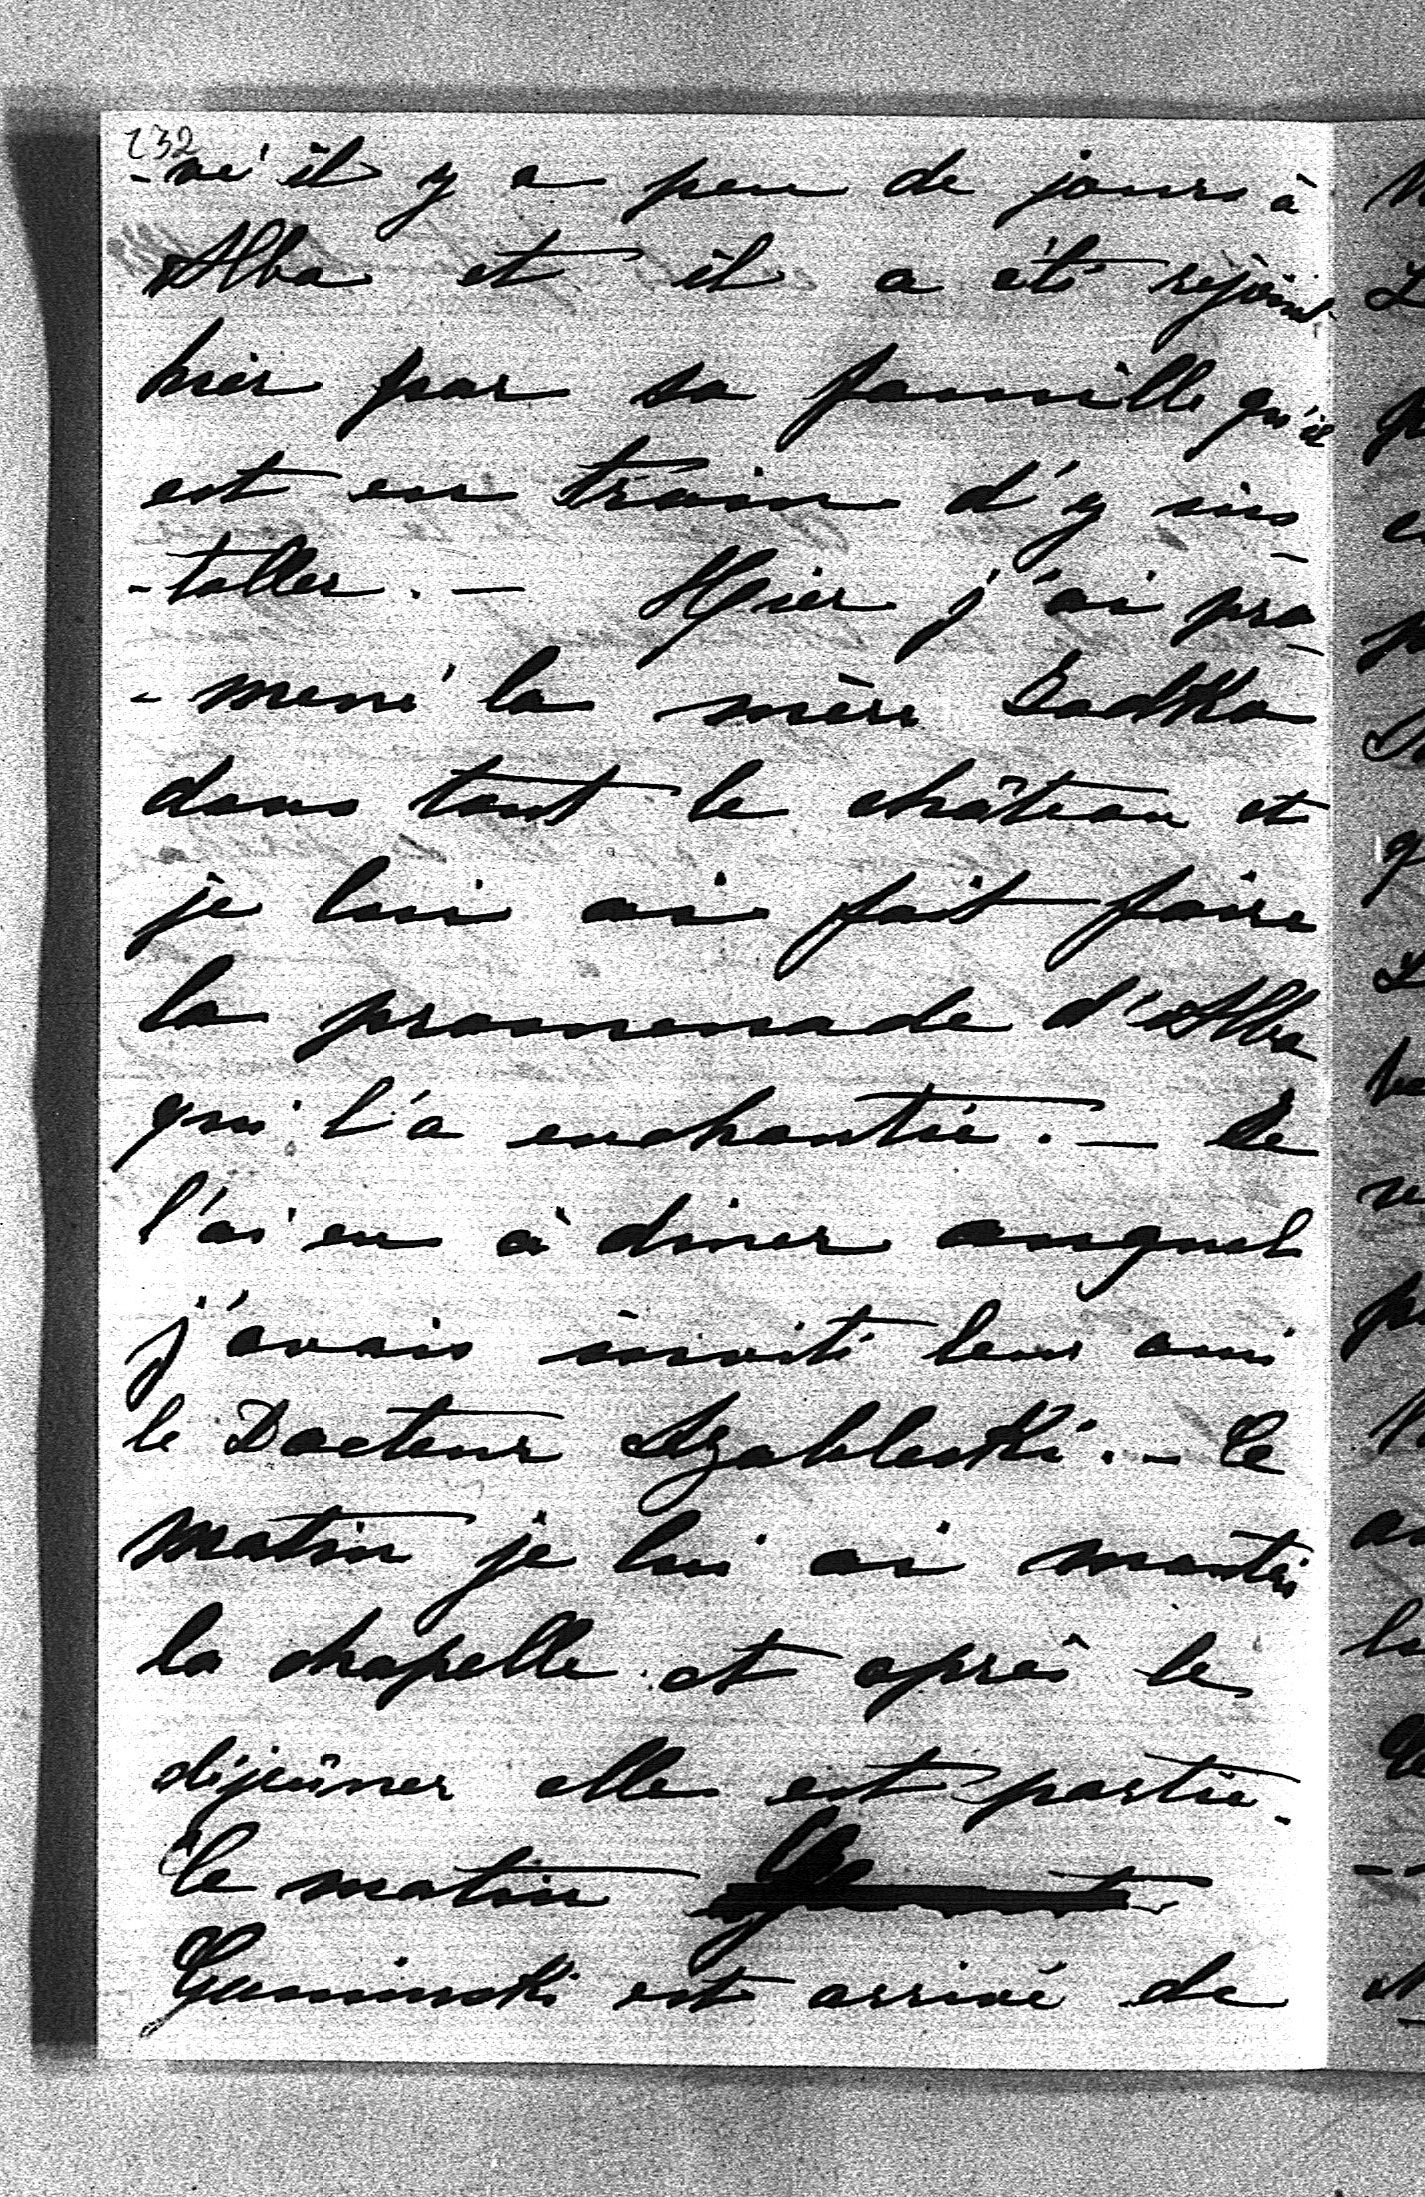 232
-vé il y a peu de jours à
Alba et il a été rejoint
hier par sa famille qu'il
est en train d'y ins
-taller. — Hier j'ai pro
-mené la mère Zadka
dans tout le château et
je lui ai fait faire
la promenade d'Alba
qui l'a enchantée. — Je
l'ai eu à diner auquel
j'avais invité leur ami
le Docteur Szableski. — Ce
matin je lui ai montré
la chapelle et après le
déjeûner elle est partie.
Ce matin
est arrivé de